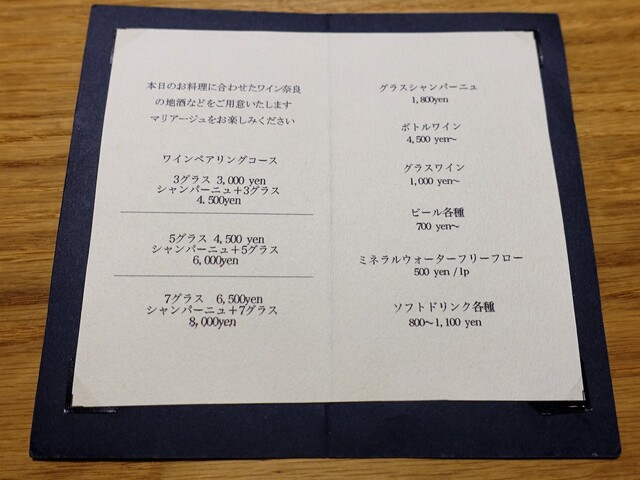 本日のお料理に合わせたワイン奈良
の地酒などをご用意いたします
マリアージュをお楽しみください
ワインペアリングコース
3グラス 3,000 yen
シャンパーニュ+3グラス
4.500yen
5グラス 4,500 yen
シャンパーニュ+5グラス
6,000yen
7グラス 6,500yen
シャンパーニュ+7グラス
8,000yen
グラスシャンパーニュ
1,800yen
ボトルワイン
4,500 yen~
グラスワイン
1,000 yen~
ビール各種
700 yen~
ミネラルウォーターフリーフロー
500 yen/1p
ソフトドリンク各種
800~1,100 yen